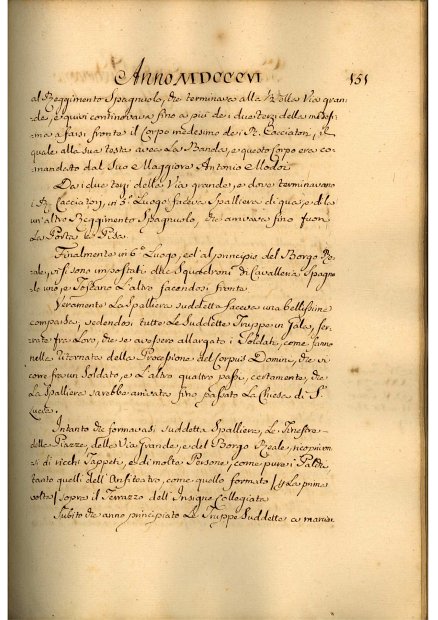 Anno MDCCCVI 151
al Reggimento Spagnuolo, che terminava alla della Via gran:
de, e quivi continovava fino a più de i due terzi della medesi:
ma a farsi fronte il Corpo medesimo de i Cacciatori, il
quale alla sua testa avea la Banda, e questo corpo era co:
mandato dal Suo Maggiore Antonio
Da i due terzi della Via grande, e dove terminavano
i Cacciatori, in 5º Luogo faceva Spalliera di qua, e di là
un'altro Reggimento Spagnuolo, che arrivava fino fuori
La Porta a Pisa
Finalmente in 6º Luogo, ed al principio del Borgo Re:
ale, vi si sono impostati due Squadroni di Cavalleria Spagno
le uno, e Toscano L'altro facendosi fronte
Veramente La Spalliera suddetta faceva una bellissima
comparsa, vedendosi tutte Le Suddette Truppe in Gala, ser:
rate fra Loro, che se avessero allargato i Soldati, come fanno
nella Ritornata della Processione del Corpus Domini, che vi
corre fra un Soldato, e L'altro quattro passi, certamente, che
La Spalliera sarebbe arrivata fino passato La Chiesa di Sª
Lucia.
Intanto che formavasi suddetta Spalliera, Le Finestre
della Piazza, della Via Grande, e del Borgo Reale, ricoprivan:
si di ricchi Tappeti, e di molte Persone, come pure i Palchi
tanto quelli dell'Anfiteatro, come quello formato (La prima
volta) sopra il Terrazzo dell'Insigne Collegiata
Subito che anno principiato Le Truppe Suddette a marcia